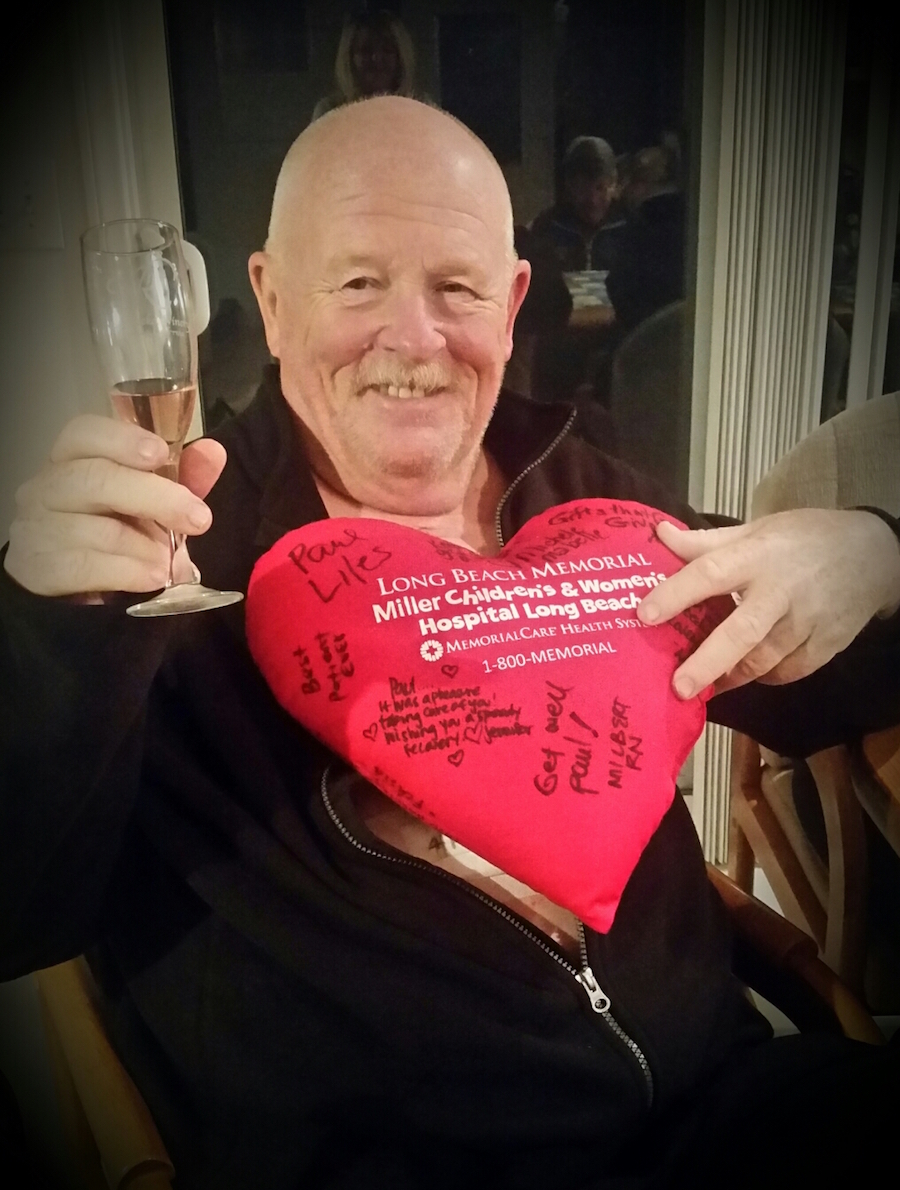 Paul
Liles
LONG BEACH MEMORIAL
Miller Children's & Women's
Hospital Long Beach
MEMORIALCARE HEALTH SYSTEM
1-800-MEMORIAL
Best
Patient
Ever
Paul
It was a pleasure
taking care of you,
wishing you a speedy
recovery Jennifer
Get well
Paul!
MILBERT
RN